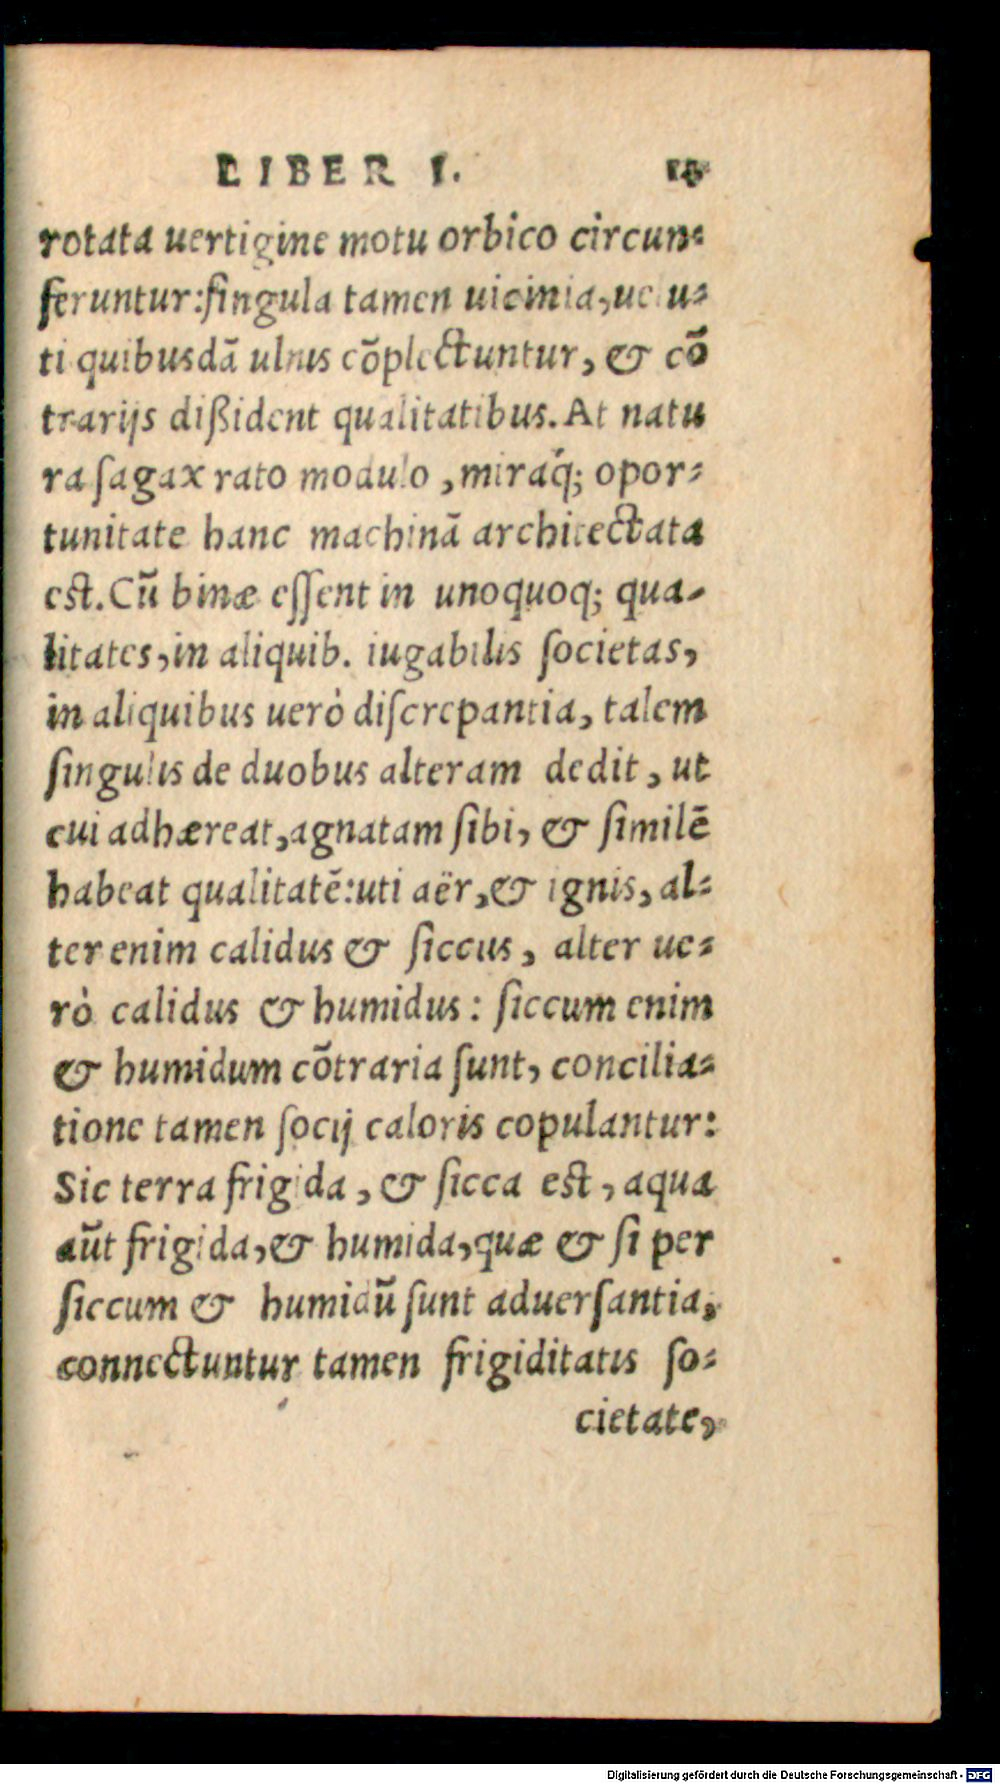 LIBER I.
rotata uertigine motu orbico circun-
feruntur: singula tamen uicinia, uelu-
ti quibusdā ulnis cōplectuntur, & cō
trarijs dißident qualitatibus. At natu
ra sagax rato modulo, miraq́; opor-
tunitate hanc machinā architectata
est. Cū binæ essent in unoquoq; qua-
litates, in aliquib. iugabilis societas,
in aliquibus uerò discrepantia, talem
singulis de duobus alteram dedit, ut
cui adhæreat, agnatam sibi, & similē
habeat qualitatē: uti aër, & ignis, al-
ter enim calidus & siccus, alter ue-
rò calidus & humidus: siccum enim
& humidum cōtraria sunt, concilia-
tione tamen socij caloris copulantur:
Sic terra frigida, & sicca est, aqua
aūt frigida, & humida, quæ & si per
siccum & humidū sunt aduersantia,
connectuntur tamen frigiditatis so-
cietate,
Digitalisierung gefördert durch die Deutsche Forschungsgemeinschaft - DFG